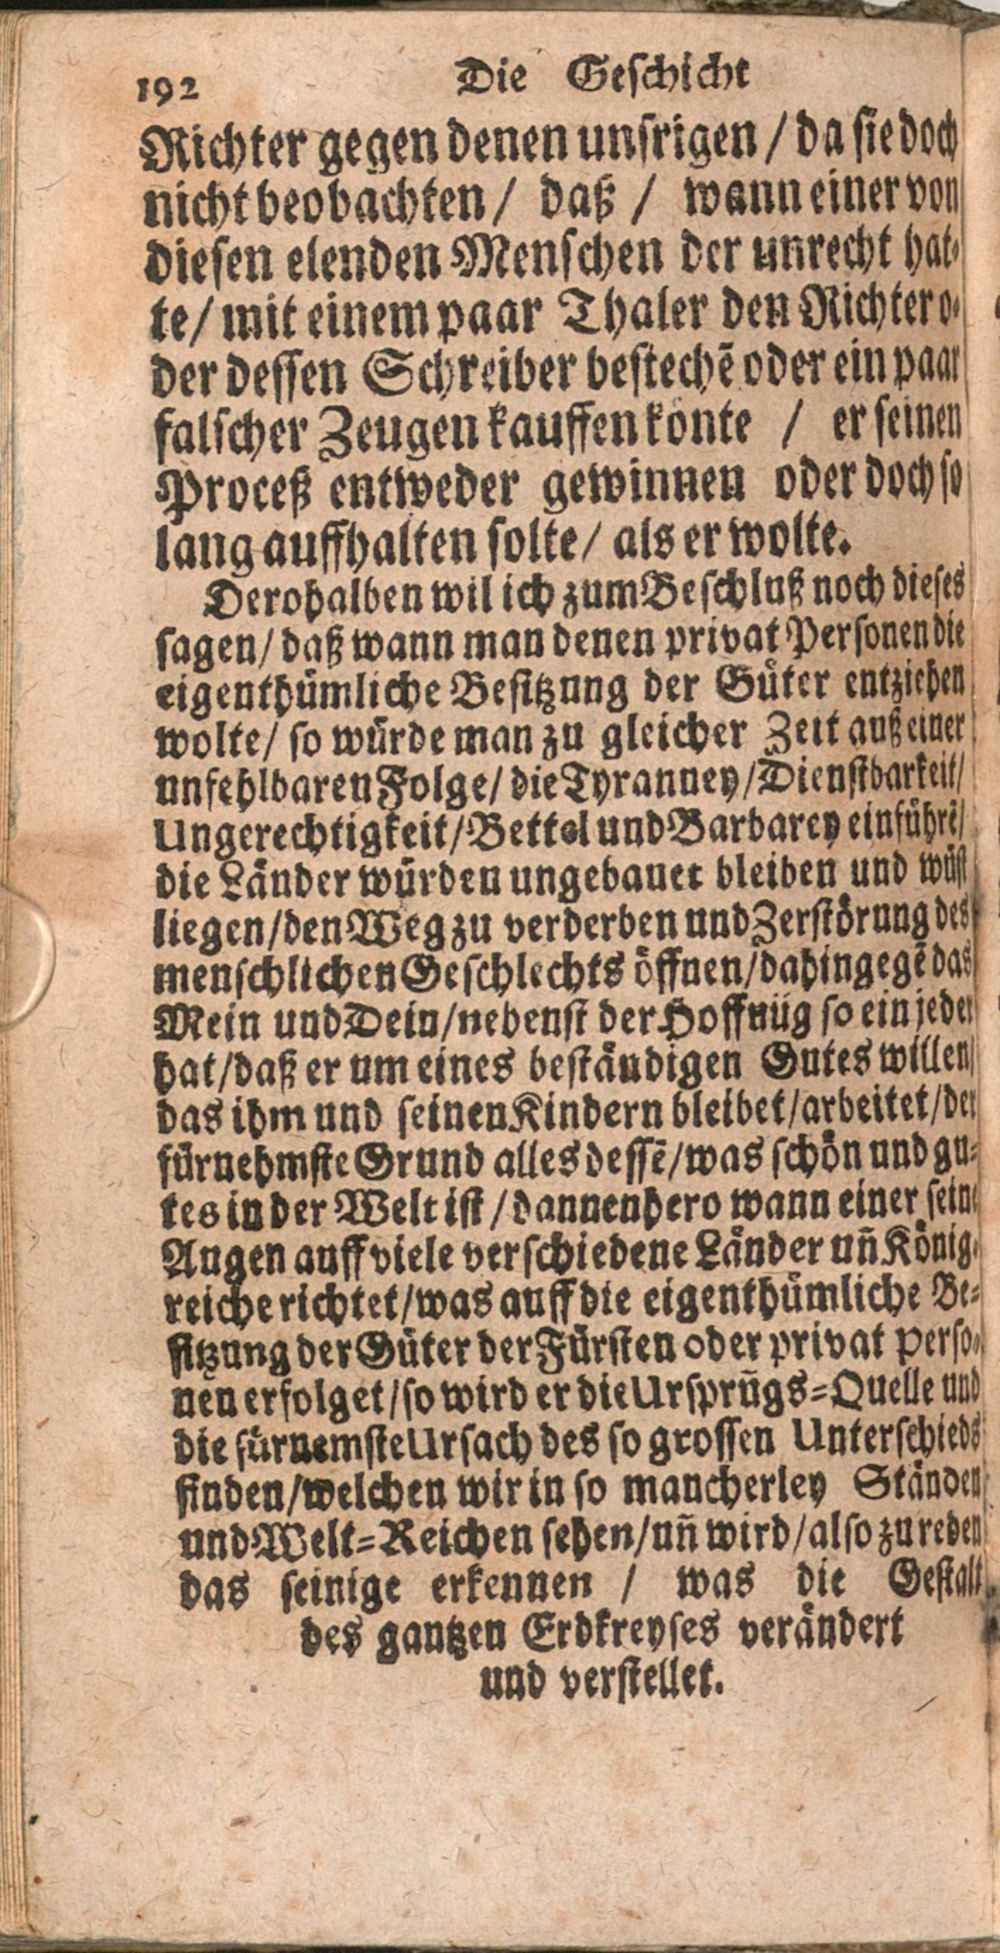 192 Die Geschicht
Richter gegen denen unsrigen / da sie doch
nicht beobachten / daß / wann einer von
diesen elenden Menschen der unrecht hat-
te / mit einem paar Thaler den Richter o-
der dessen Schreiber bestechē oder ein paar
falscher Zeugen kauffen könte / er seinen
Proceß entweder gewinnen oder doch so
lang auffhalten solte / als er wolte.
Derohalben wil ich zum Beschluß noch dieses
sagen / daß wann man denen privat Personen die
eigenthümliche Besitzung der Güter entziehen
wolte / so würde man zu gleicher Zeit auß einer
unfehlbaren Folge / die Tyranney / Dienstbarkeit /
Ungerechtigkeit / Bettel und Barbarey einführē /
die Länder würden ungebauet bleiben und wüst
liegen / den Weg zu verderben und Zerstörung des
menschlichen Geschlechts öffnen / dahingegē das
Mein und Dein / nebenst der Hoffnūg so ein jeder
hat / daß er um eines beständigen Gutes willen /
das ihm und seinen Kindern bleibet / arbeitet / der
fürnehmste Grund alles dessē / was schön und gu-
tes in der Welt ist / dannenhero wann einer seine
Augen auff viele verschiedene Länder uñ König-
reiche richtet / was auff die eigenthümliche Be-
sitzung der Güter der Fürsten oder privat perso-
nen erfolget / so wird er die Ursprūgs-Quelle und
die fürnemste Ursach des so grossen Unterschieds
finden / welchen wir in so mancherley Ständen
und Welt-Reichen sehen / uñ wird / also zu reden
das seinige erkennen / was die Gestalt
des gantzen Erdkreyses verändert
und verstellet.